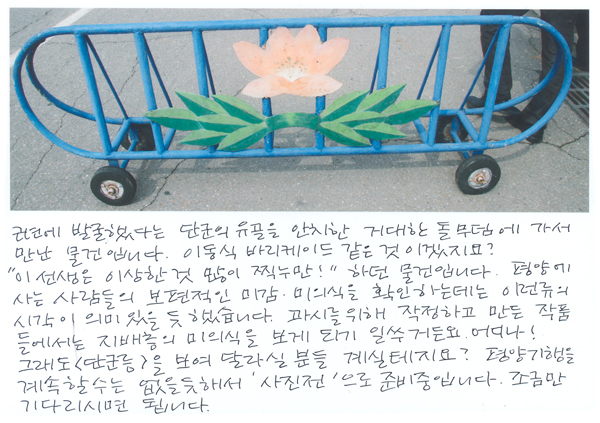 근년에 발굴했다는 단군의 유골을 안치한 거대한 돌무덤에 가서
만난 물건입니다. 이동식 바리케이드 같은 것이겠지요?
"이 선생은 이상한 것 많이 찍누만!" 하던 물건입니다. 평양에
사는 사람들의 보편적인 미감·미의식을 확인하는데는 이런류의
시각이 의미 있을 듯 했습니다. 과시를 위해 작정하고 만든 작품
들에서는 지배층의 미의식을 보게 되기 일쑤거든요. 어디나!
그래도 <단군릉>을 보여 달라실 분들 계실테지요? 평양기행을
계속할 수는 없을듯해서 '사진전'으로 준비중입니다. 조금만
기다리시면 됩니다.